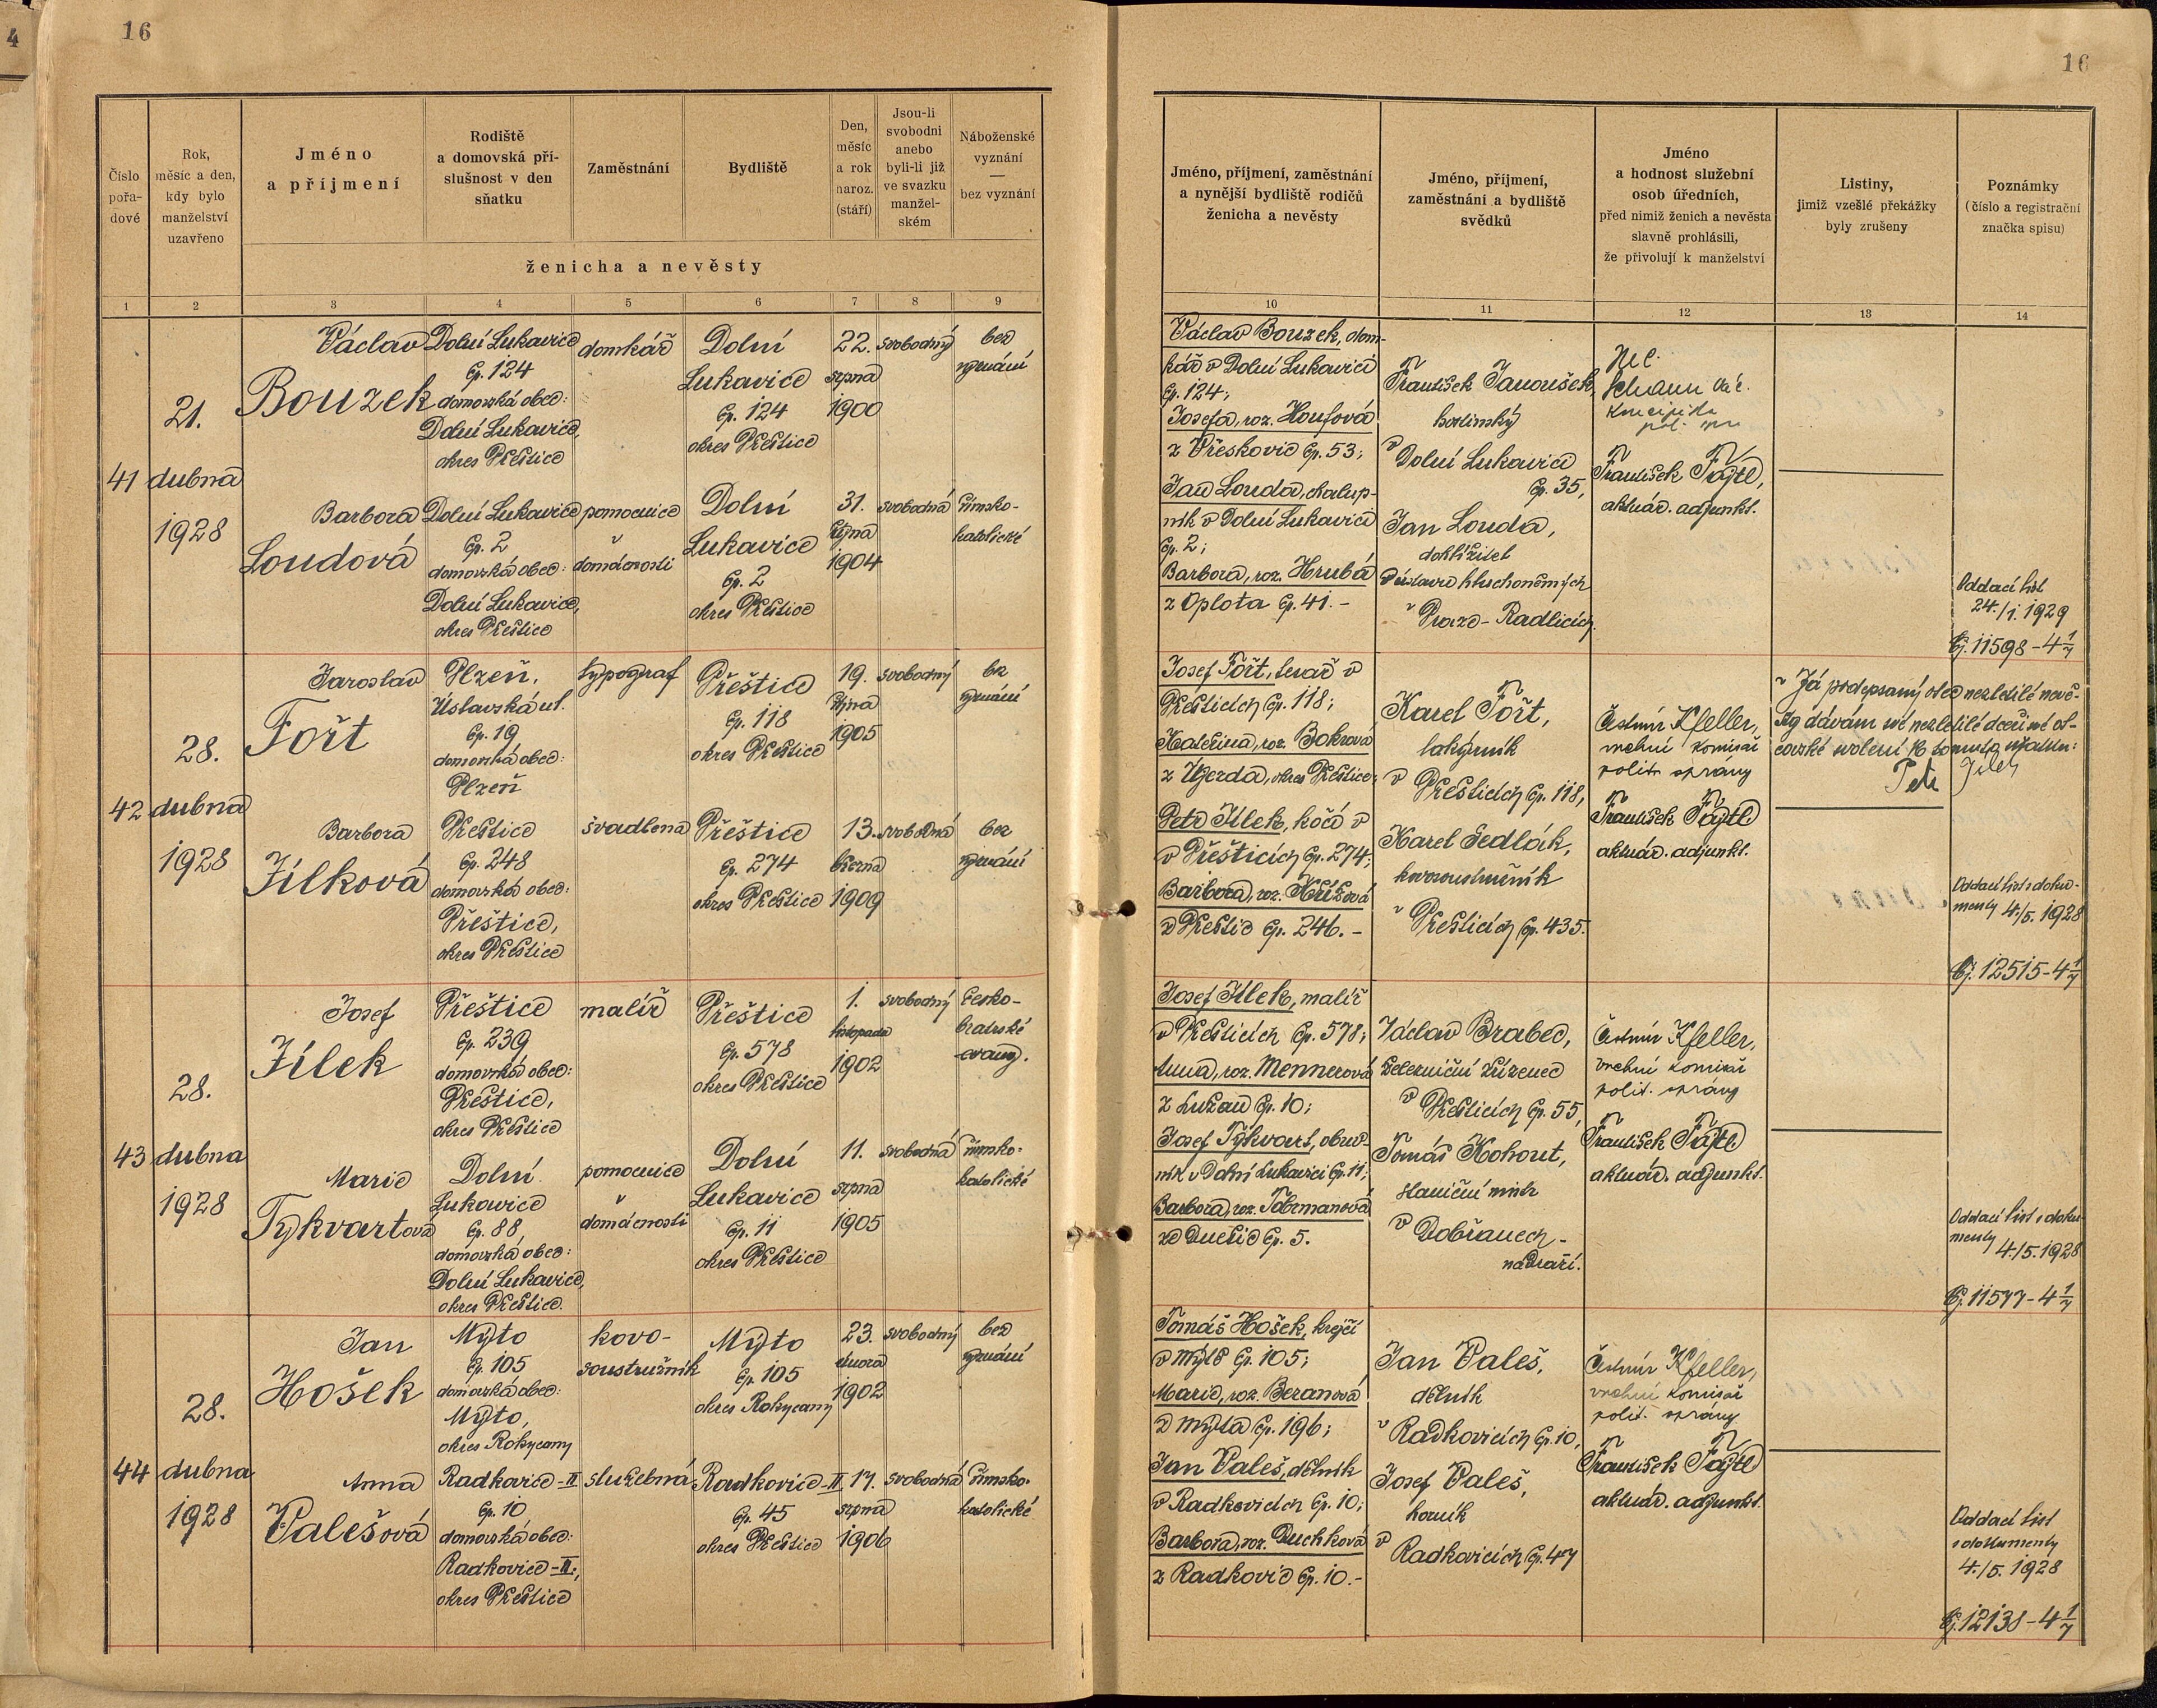 4
16
Číslo pořa-dové
Rok, měsíc a den, kdy bylo manželství uzavřeno
Jméno a příjmení
Rodiště a domovská pří-slušnost v den sňatku
Zaměstnání
Bydliště
Den, měsíc a rok naroz. (stáří)
Jsou-li svobodni anebo byli-li již ve svazku manžel-ském
Náboženské vyznání — bez vyznání
ženicha a nevěsty
1 2 3 4 5 6 7 8 9
41
21.
dubna
1928
Václav
Bouzek
Dolní Lukavice
čp. 124
domovská obec:
Dolní Lukavice,
okres Přeštice
domkář
Dolní
Lukavice
čp. 124
okres Přeštice
22.
srpna
1900
svobodný
bez
vyznání
Barbora
Loudová
Dolní Lukavice
čp. 2
domovská obec:
Dolní Lukavice,
okres Přeštice
pomocnice
v
domácnosti
Dolní
Lukavice
čp. 2
okres Přeštice
31.
října
1904
svobodná
římsko-
katolické
42
28.
dubna
1928
Jaroslav
Fořt
Plzeň,
Úslavská ul.
čp. 19
domovská obec:
Plzeň
typograf
Přeštice
čp. 118
okres Přeštice
19.
října
1905
svobodný
bez
vyznání
Barbora
Jílková
Přeštice
čp. 248
domovská obec:
Přeštice,
okres Přeštice
švadlena
Přeštice
čp. 274
okres Přeštice
13.
března
1909
svobodná
bez
vyznání
43
28.
dubna
1928
Josef
Jílek
Přeštice
čp. 239
domovská obec:
Přeštice,
okres Přeštice
malíř
Přeštice
čp. 578
okres Přeštice
1.
listopadu
1902
svobodný
česko-
bratrské
evang.
Marie
Tykvartová
Dolní
Lukavice
čp. 88,
domovská obec:
Dolní Lukavice,
okres Přeštice.
pomocnice
v
domácnosti
Dolní
Lukavice
čp. 11
okres Přeštice
11.
srpna
1905
svobodná
římsko-
katolické
44
28.
dubna
1928
Jan
Hošek
Mýto
čp. 105
domovská obec:
Mýto,
okres Rokycany
kovo-
soustružník
Mýto
čp. 105
okres Rokycany
23.
února
1902
svobodný
bez
vyznání
Anna
Valešová
Radkovice-II
čp. 10
domovská obec:
Radkovice-II.,
okres Přeštice
služebná
Radkovice-II
čp. 45
okres Přeštice
17.
srpna
1906
svobodná
římsko-
katolické
16
Jméno, příjmení, zaměstnání
a nynější bydliště rodičů
ženicha a nevěsty
Jméno, příjmení,
zaměstnání a bydliště
svědků
Jméno
a hodnost služební
osob úředních,
před nimiž ženich a nevěsta
slavně prohlásili,
že přivolují k manželství
Listiny,
jimiž vzešlé překážky
byly zrušeny
Poznámky
(číslo a registrační
značka spisu)
10 11 12 13 14
Václav Bouzek, dom-
kář v Dolní Lukavici
čp. 124;
Josefa, roz. Houfová
z Přeskovic čp. 53;
Jan Louda, chalup-
ník v Dolní Lukavici
čp. 2;
Barbora, roz. Hrubá
z Oplota čp. 41.-
František Janoušek,
hostinský
v
Dolní Lukavici
čp. 35,
Jan Louda,
dohlížitel
v ústavu hluchoněmých
v
Praze-Radlicích.
František Fajtl,
aktuár. adjunkt.
Oddací list
24./1. 1929
Čj. 11598-4 1/7
Josef Fořt, tesař v
Přešticích čp. 118;
Kateřina, roz. Bokrová
z Újezda, okres Přeštice;
Petr Jílek, kočí v
v Přešticích čp. 274;
Barbora, roz. Křížová
z Přeštic čp. 246.-
Karel Fořt,
lakýrník
v
Přešticích čp. 118,
Karel Sedlák,
kovosoustružník
v
Přešticích čp. 435.
Čestmír Kfeller,
vrchní komisař
polit. správy
František Fajtl
aktuár. adjunkt.
Já podepsaný otec nezletilé nevě-
sty dávám své nezletilé dceři své ot-
covské svolení k tomuto sňatku:
Petr Jílek
Oddací list s doku-
menty 4./5. 1928
Čj. 12515-4 1/7
Josef Jílek, malíř
v Přešticích čp. 578;
Anna, roz. Mennerová
z Lužan čp. 10;
Josef Tykvart, obuv-
ník v Dolní Lukavici čp. 11;
Barbora, roz. Tobrmanová
ze Dnešic čp. 5.
Václav Brabec,
železniční zřízenec
v
Přešticích čp. 55,
Tomáš Kohout,
staniční mistr
v
Dobřanech-
nádraží.
Čestmír Kfeller,
vrchní komisař
polit. správy
František Fajtl
aktuár. adjunkt.
Oddací list s doku-
menty 4./5. 1928
Čj. 11577-4 1/7
Tomáš Hošek, krejčí
v Mýtě čp. 105;
Marie, roz. Beranová
z Mýta čp. 196;
Jan Valeš, dělník
v Radkovicích čp. 10;
Barbora, roz. Duchková
z Radkovic čp. 10.-
Jan Valeš,
dělník
v
Radkovicích čp. 10,
Josef Valeš,
horník
v
Radkovicích čp. 47
Čestmír Kfeller,
vrchní komisař
polit. správy
František Fajtl
aktuár. adjunkt.
Oddací list
s dokumenty
4./5. 1928
Čj. 12138-4 1/7